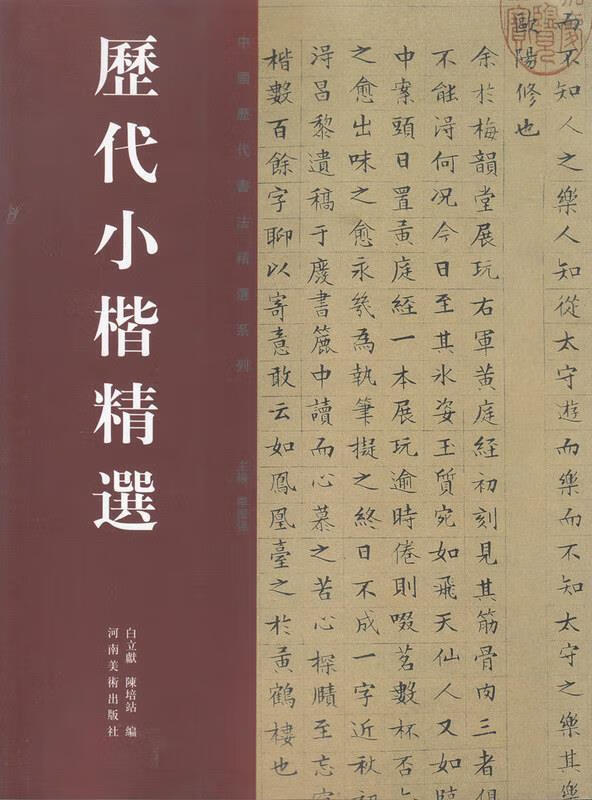 歷代小楷精選
中國歷代書法精選系列
主編
白立獻 陳培站 編
河南美術出版社
而不知人之樂人知從太守遊而樂而不知太守之樂其樂
歐陽修也
余於梅韻堂展玩右軍黃庭經初刻見其筋骨向三者俱
不能淂何况今日至其氷姿玉質宛如飛天仙人又如臨
中案頭日置黃庭經一本展玩逾時倦則啜茗數杯否
之愈出味之愈永幾為執筆擬之終日不成一字近秋初
淂昌黎遺稿于慶書簏中讀而心慕之苦心探賾至忘字
楷數百餘字聊以寄意敢云如鳳凰臺之於黃鶴樓也